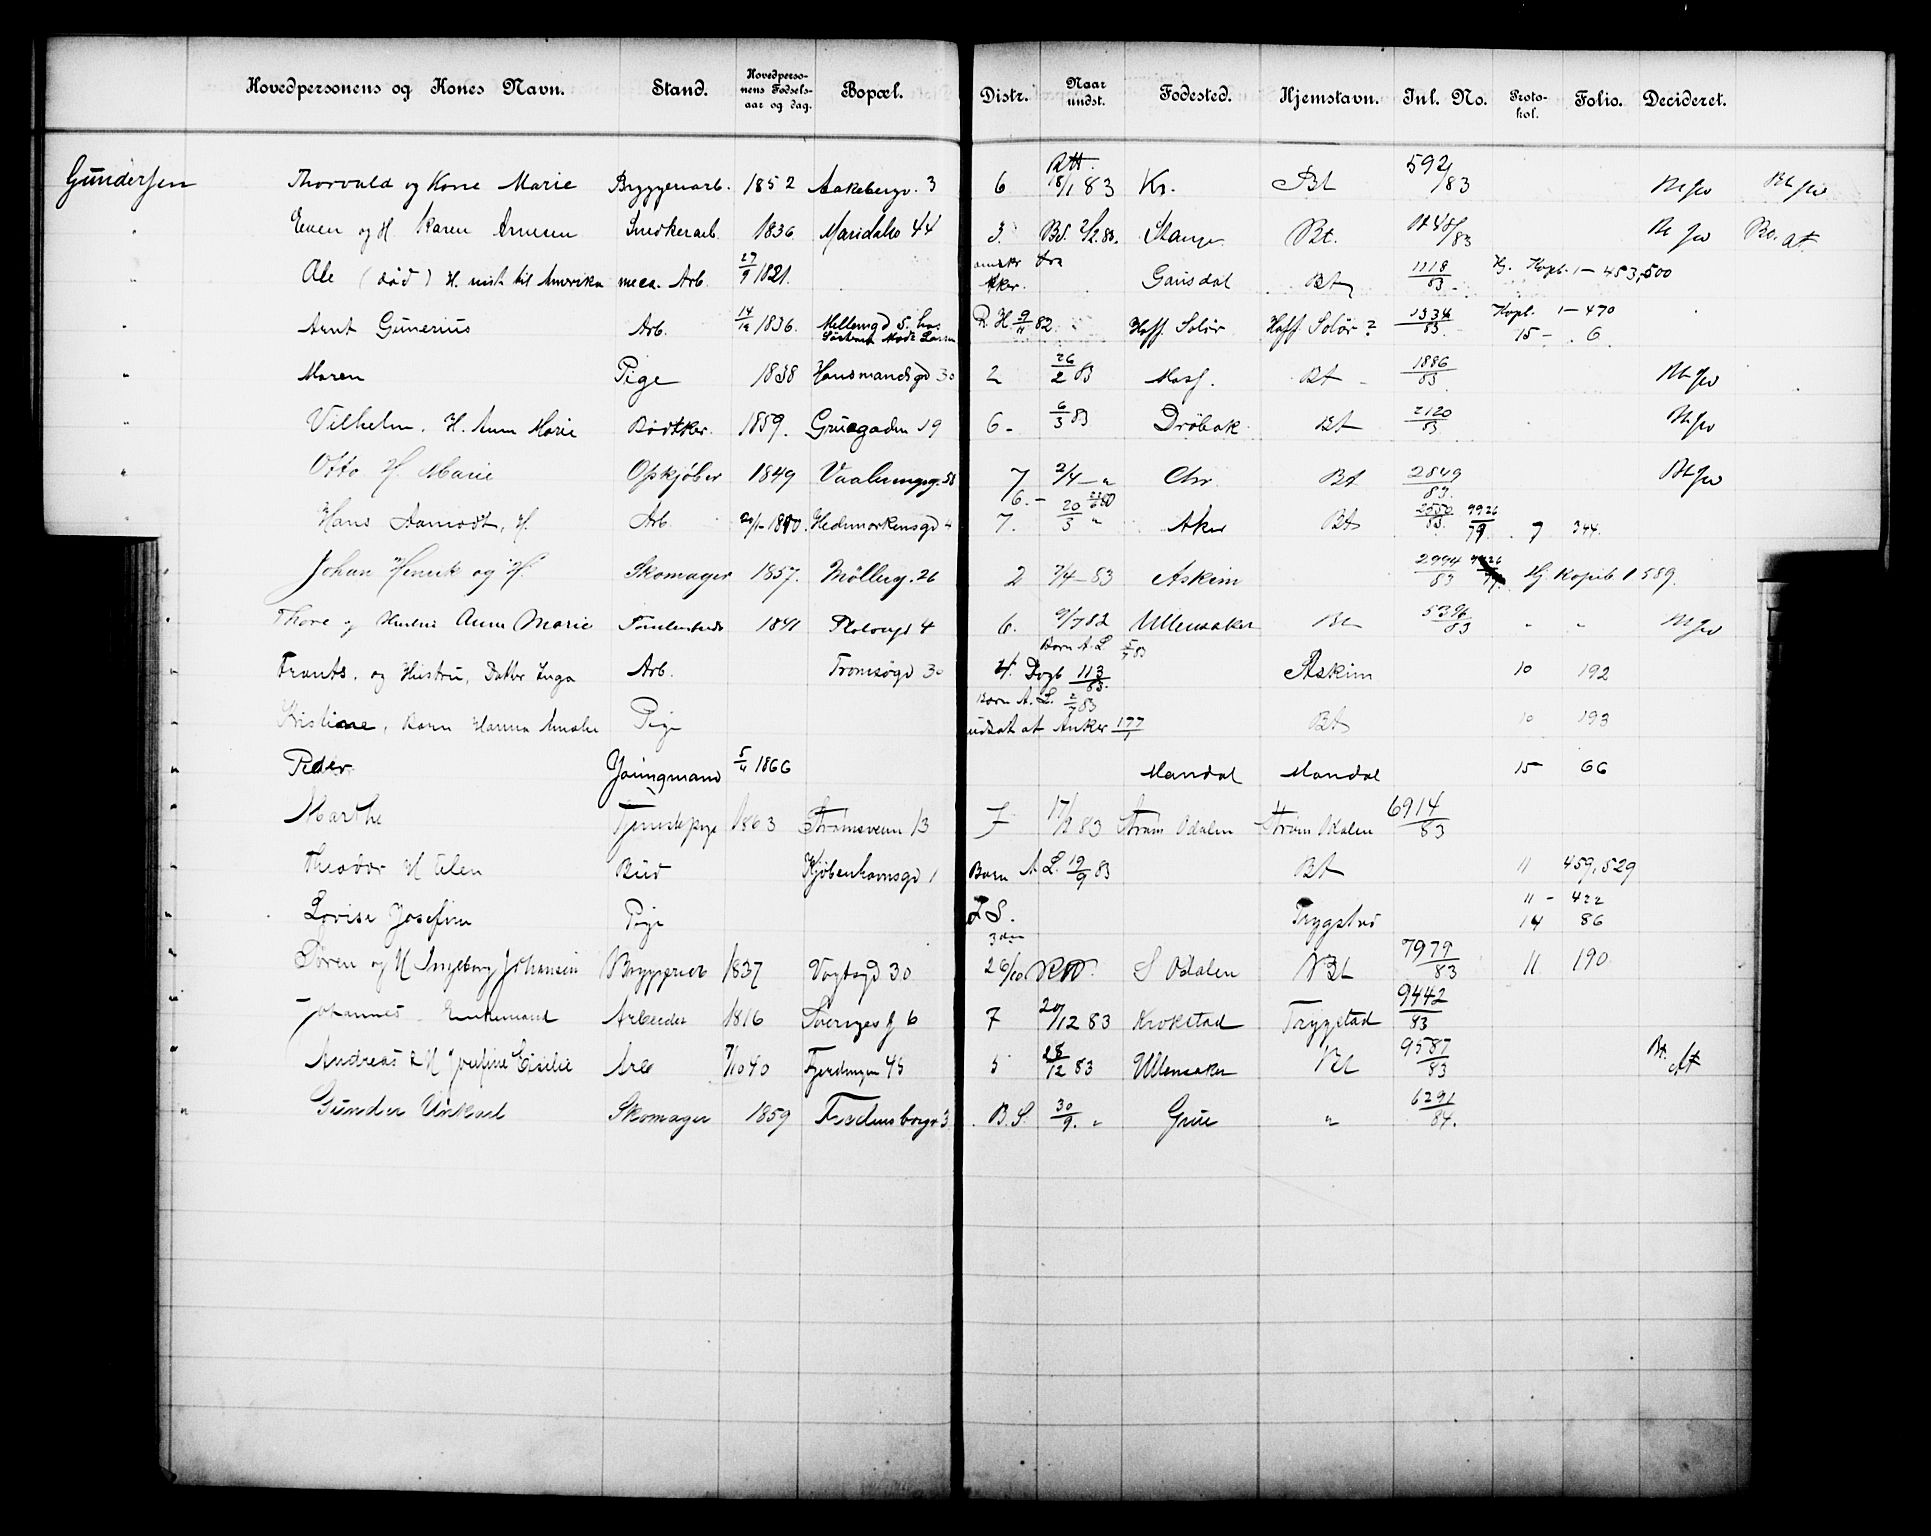 Hovedpersonens og Kones Navn. Stand. Hovedpersonens Fødselsaar og dag. Bopæl. Distr. Naar undst. Fødested. Hjemstavn. Jnl. No. Protokol. Folio. Decideret.
Gundersen Thorvald og Kone Marie Bryggeriarb. 1852 Aakebergv. 3 6 18/1 83 Kr. Bt 592/83
" Even og H. Karen Arnesen Snedkerarb. 1836 Maridalsv 44 3. 2/2 83. Stange Bt. 48/83
" Ole (død) H. reist til Amerika mec. Arb. 27/9 1821. Aker. Gausdal Bt 1118/83 Kopb. 1 – 453,500
" Arnt Gunerius Arb. 14/12 1836. Møllergd 5. hos R.H 9/11 82 Hoff Solør Hoff Solør? 1334/83 Kopb. 1 – 470
15 – 6
" Maren Pige 1838 Hausmandsgd 30 2 26/2 83 Moss. Bt 1886/83
" Vilhelm. H. Anna Marie Bødtker. 1859. Gruegaden 19 6 – 6/3 83 Drøbak Bt 2120/83
" Otto H. Marie Opkjøber 1849 Vaalerengg. 7 2/4 – " Chr Bt 2849/83
" Hans Aamodt, H. Arb. Hedemarkensgd 4 7. 20/3 " Aker Bt 2550/83 9926/79 7 344.
" Johan Henrik og H. Skomager 1857. Møllerg. 26 2 7/4 – 83 Askim 2994/83 Hj. Kopib 1 589.
" Thore og Hustru Anna Marie 1841 Platousgd 4 6. 9/7 82 Ullensaker Bt 5396/83 " "
" Frants. og Hustru, Datter Inga Arb. Tromsøgd 30 4. Dagb 113/83. Børn A. L. 5/7 83 Askim 10 192
" Kristiane, Barn Hanna Amalie Pige Børn A. L. 2/7 83 udsat at Anker 177/1 Bt 10 193
" Peder Youngmand 5/11 1866 Mandal Mandal 15 66
" Marthe Tjenestepige 1863 Strømsveien 13 7 83 Strøm Odalen Strøm Odalen 6914/83
" Theodor H Elen Bud Kjøbenhavnsgd 1 Børn A. L. 19/9 83 Bt 11 459, 529
" Lovise Josefine Pige Trygstad 11 – 422
14 86
" Søren og H Ingeborg Johansen Bryggeriarb 1837 Vogtsgd 30 26/10 S Odalen Bt 7979/83 11 190
" Johannes Enkemand Arbeider 1816 Sverigesg 6 7 20/12 83 Krokstad Trygstad 9442/83
" Andreas & H Josefine Cecilie Arb 7/10 40 Fjerdingen 45 5 28/12 83 Ullensaker Bt 9587/83 Bt. At
" Gunder Ukjend Skomager 1859 Fredensborgv 3 B.S. 30/9. " Grue " 6291/84.